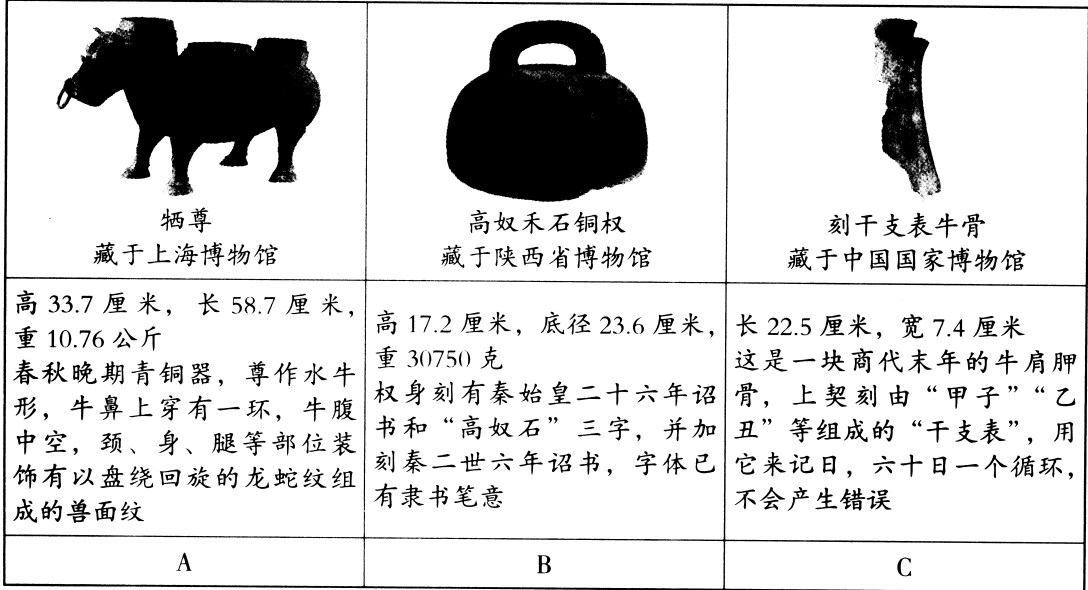 牺尊
藏于上海博物馆
高奴禾石铜权
藏于陕西省博物馆
刻干支表牛骨
藏于中国国家博物馆
高 33.7 厘米，长 58.7 厘米，
重 10.76 公斤
春秋晚期青铜器，尊作水牛
形，牛鼻上穿有一环，牛腹
中空，颈、身、腿等部位装
饰有以盘绕回旋的龙蛇纹组
成的兽面纹
高 17.2 厘米，底径 23.6 厘米，
重 30750 克
权身刻有秦始皇二十六年诏
书和“高奴石”三字，并加
刻秦二世六年诏书，字体已
有隶书笔意
长 22.5 厘米，宽 7.4 厘米
这是一块商代末年的牛肩胛
骨，上契刻由“甲子”“乙
丑”等组成的“干支表”，用
它来记日，六十日一个循环，
不会产生错误
A
B
C